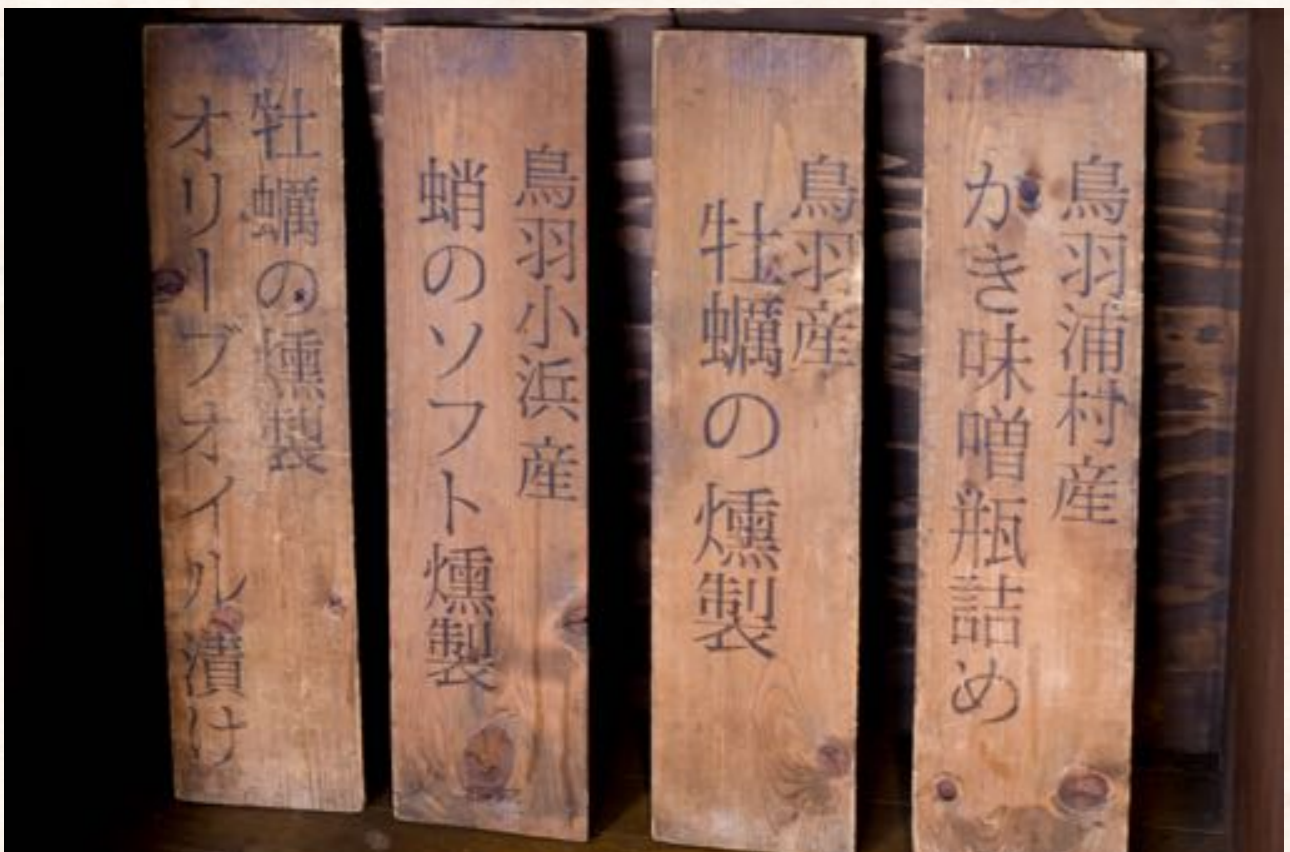 鳥羽浦村産
かき味噌瓶詰め
鳥羽産
牡蠣の燻製
鳥羽小浜産
蛸のソフト燻製
牡蠣の燻製
オリーブオイル漬け